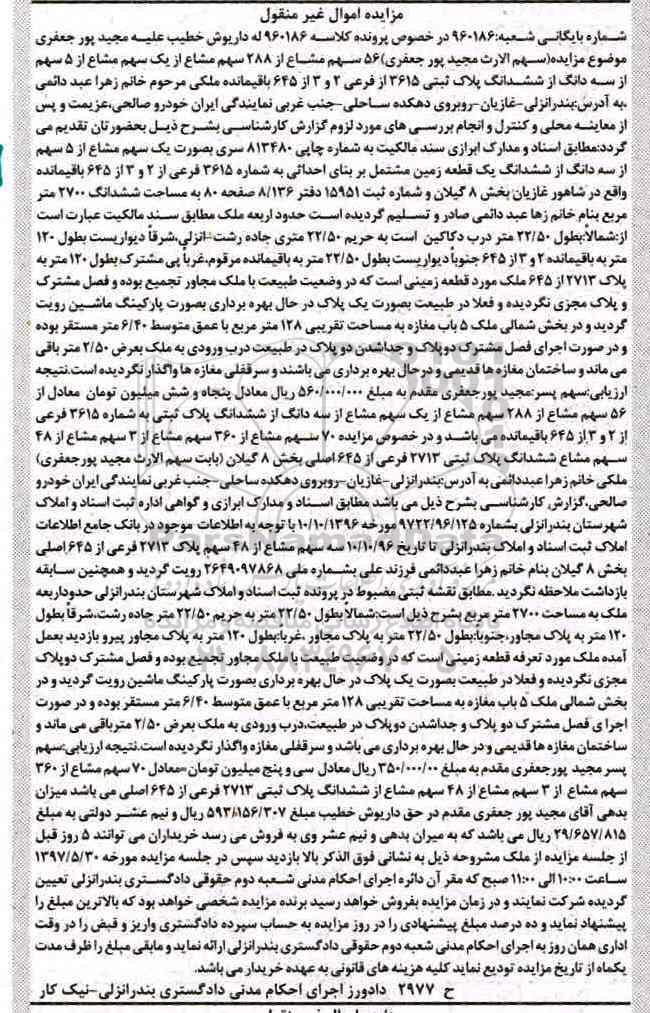 مزایده اموال غیر منقول
شماره بایگانی شعبه:۹۶۰۱۸۶ در خصوص پرونده کلاسه ۹۶۰۱۸۶ له داریوش خطیب علیه مجید پور جعفری
موضوع مزایده(سهم الارث مجید پور جعفری)۵۶ سهم مشاع از ۲۸۸ سهم مشاع از یک سهم مشاع از ۵ سهم
از سه دانگ از ششدانگ پلاک ثبتی ۳۶۱۵ از فرعی ۲ و ۳ از ۶۴۵ باقیمانده ملکی مرحوم خانم زهرا عبد دائمی
،به آدرس:بندرانزلی-غازیان-روبروی دهکده ساحلی-جنب غربی نمایندگی ایران خودرو صالحی،عزیمت و پس
از معاینه محلی و کنترل و انجام بررسی های مورد لزوم گزارش کارشناسی بشرح ذیل بحضورتان تقدیم می
گردد:مطابق اسناد و مدارک ابرازی سند مالکیت به شماره چاپی ۸۱۳۴۸۰ سری بصورت یک سهم مشاع از ۵ سهم
از سه دانگ از ششدانگ یک قطعه زمین مشتمل بر بنای احداثی به شماره ۳۶۱۵ فرعی از ۲ و ۳ از ۶۴۵ باقیمانده
واقع در شاهور غازیان بخش ۸ گیلان و شماره ثبت ۱۵۹۵۱ دفتر ۸/۱۳۶ صفحه ۸۰ به مساحت ششدانگ ۲۷۰۰ متر
مربع بنام خانم زها عبد دائمی صادر و تسلیم گردیده است حدود اربعه ملک مطابق سند مالکیت عبارت است
از:شمالاً:بطول ۲۲/۵۰ متر درب دکاکین است به حریم ۲۲/۵۰ متری جاده رشت-انزلی،شرقاً دیواریست بطول ۱۲۰
متر به باقیمانده ۲ و ۳ از ۶۴۵ جنوباً دیواریست بطول ۲۲/۵۰ متر به باقیمانده مرقوم،غرباً پی مشترک بطول ۱۲۰ متر به
پلاک ۲۷۱۳ از ۶۴۵ ملک مورد قطعه زمینی است که در وضعیت طبیعت با ملک مجاور تجمیع بوده و فصل مشترک
و پلاک مجزی نگردیده و فعلا در طبیعت بصورت یک پلاک در حال بهره برداری بصورت پارکینگ ماشین رویت
گردید و در بخش شمالی ملک ۵ باب مغازه به مساحت تقریبی ۱۲۸ متر مربع با عمق متوسط ۶/۴۰ متر مستقر بوده
و در صورت اجرای فصل مشترک دوپلاک و جداشدن دو پلاک در طبیعت درب ورودی به ملک بعرض ۲/۵۰ متر باقی
می ماند و ساختمان مغازه ها قدیمی و درحال بهره برداری می باشند و سرقفلی مغازه ها واگذار نگردیده است.نتیجه
ارزیابی:سهم پسر:مجید پورجعفری مقدم به مبلغ ۵۶۰/۰۰۰/۰۰۰ ریال معادل پنجاه و شش میلیون تومان معادل از
۵۶ سهم مشاع از ۲۸۸ سهم مشاع از یک سهم مشاع از سه دانگ از ششدانگ پلاک ثبتی به شماره ۳۶۱۵ فرعی
از ۲ و ۳ از ۶۴۵ باقیمانده می باشد و در خصوص مزایده ۷۰ سهم مشاع از ۳۶۰ سهم مشاع از ۳ سهم مشاع از ۴۸
سهم مشاع ششدانگ پلاک ثبتی ۲۷۱۳ فرعی از ۶۴۵ اصلی بخش ۸ گیلان (بابت سهم الارث مجید پورجعفری)
ملکی خانم زهرا عبددائمی به آدرس:بندرانزلی-غازیان-روبروی دهکده ساحلی-جنب غربی نمایندگی ایران خودرو
صالحی،گزارش کارشناسی بشرح ذیل می باشد.مطابق اسناد و مدارک ابرازی و گواهی اداره ثبت اسناد و املاک
شهرستان بندرانزلی بشماره ۹۷۲۲/۹۶/۱۲۵ مورخه ۱۰/۱۰/۱۳۹۶ با توجه به اطلاعات موجود در بانک جامع اطلاعات
املاک ثبت اسناد و املاک بندرانزلی تا تاریخ ۱۰/۱۰/۹۶ سه سهم مشاع از ۴۸ سهم پلاک ۲۷۱۳ فرعی از ۶۴۵ اصلی
بخش ۸ گیلان بنام خانم زهرا عبددائمی فرزند علی بشماره ملی ۲۶۴۹۰۹۷۸۶۸ رویت گردید و همچنین سابقه
بازداشت ملاحظه نگردید .مطابق نقشه ثبتی مضبوط در پرونده ثبت اسناد و املاک شهرستان بندرانزلی حدوداربعه
ملک به مساحت ۲۷۰۰ متر مربع بشرح ذیل است:شمالا بطول ۲۲/۵۰ متر به حریم ۲۲/۵۰ متر جاده رشت،شرقا بطول
۱۲۰ متر به پلاک مجاور،جنوبا:بطول ۲۲/۵۰ متر به پلاک مجاور ،غربا:بطول ۱۲۰ متر به پلاک مجاور پیرو بازدید بعمل
آمده ملک مورد تعرفه قطعه زمینی است که در وضعیت طبیعت با ملک مجاور تجمیع بوده و فصل مشترک دوپلاک
مجزی نگردیده و فعلا در طبیعت بصورت یک پلاک در حال بهره برداری بصورت پارکینگ ماشین رویت گردید و در
بخش شمالی ملک ۵ باب مغازه به مساحت تقریبی ۱۲۸ متر مربع با عمق متوسط ۶/۴۰ متر مستقر بوده و در صورت
اجرا ی فصل مشترک دو پلاک و جداشدن دوپلاک در طبیعت،درب ورودی به ملک بعرض ۲/۵۰ مترباقی می ماند و
ساختمان مغازه ها قدیمی و در حال بهره برداری می باشد و سرقفلی مغازه واگذار نگردیده است.نتیجه ارزیابی:سهم
پسر مجید پورجعفری مقدم به مبلغ ۳۵۰/۰۰۰/۰۰ ریال معادل سی و پنج میلیون تومان=معادل ۷۰ سهم مشاع از ۳۶۰
سهم مشاع از ۳ سهم مشاع از ۴۸ سهم مشاع از ششدانگ پلاک ثبتی ۲۷۱۳ فرعی از ۶۴۵ اصلی می باشد میزان
بدهی آقای مجید پور جعفری مقدم در حق داریوش خطیب مبلغ ۵۹۳/۱۵۶/۳۰۷ ریال و نیم عشر دولتی به مبلغ
۲۹/۶۵۷/۸۱۵ ریال می باشد که به میران بدهی و نیم عشر وی به فروش می رسد خریداران می توانند ۵ روز قبل
از جلسه مزایده از ملک مشروحه ذیل به نشانی فوق الذکر بالا بازدید سپس در جلسه مزایده مورخه ۱۳۹۷/۵/۳۰
ساعت ۱۰:۰۰ الی ۱۱:۰۰ صبح که مقر آن دائره اجرای احکام مدنی شعبه دوم حقوقی دادگستری بندرانزلی تعیین
گردیده شرکت نمایند و در زمان مزایده بفروش خواهد رسید برنده مزایده شخصی خواهد بود که بالاترین مبلغ را
پیشنهاد نماید و ده درصد مبلغ پیشنهادی را در روز مزایده به حساب سپرده دادگستری واریز و قبض را در وقت
اداری همان روز به اجرای احکام مدنی شعبه دوم حقوقی دادگستری بندرانزلی ارائه نماید و مابقی مبلغ را ظرف مدت
یکماه از تاریخ مزایده تودیع نماید کلیه هزینه های قانونی به عهده خریدار می باشد.
ح ۲۹۷۷ دادورز اجرای احکام مدنی دادگستری بندرانزلی-نیک کار